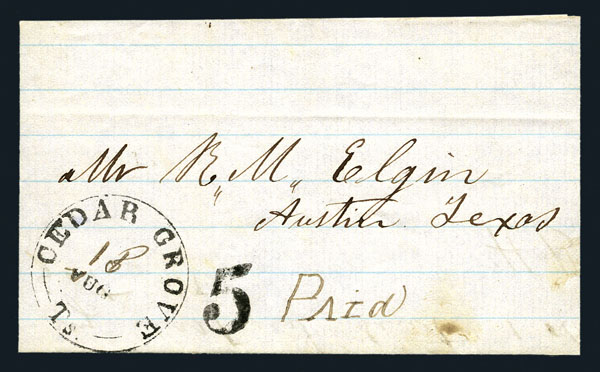 Mr R„ M„ Elgin
Austin Texas
CEDAR GROVE Ts.
18
AUG
5
Paid